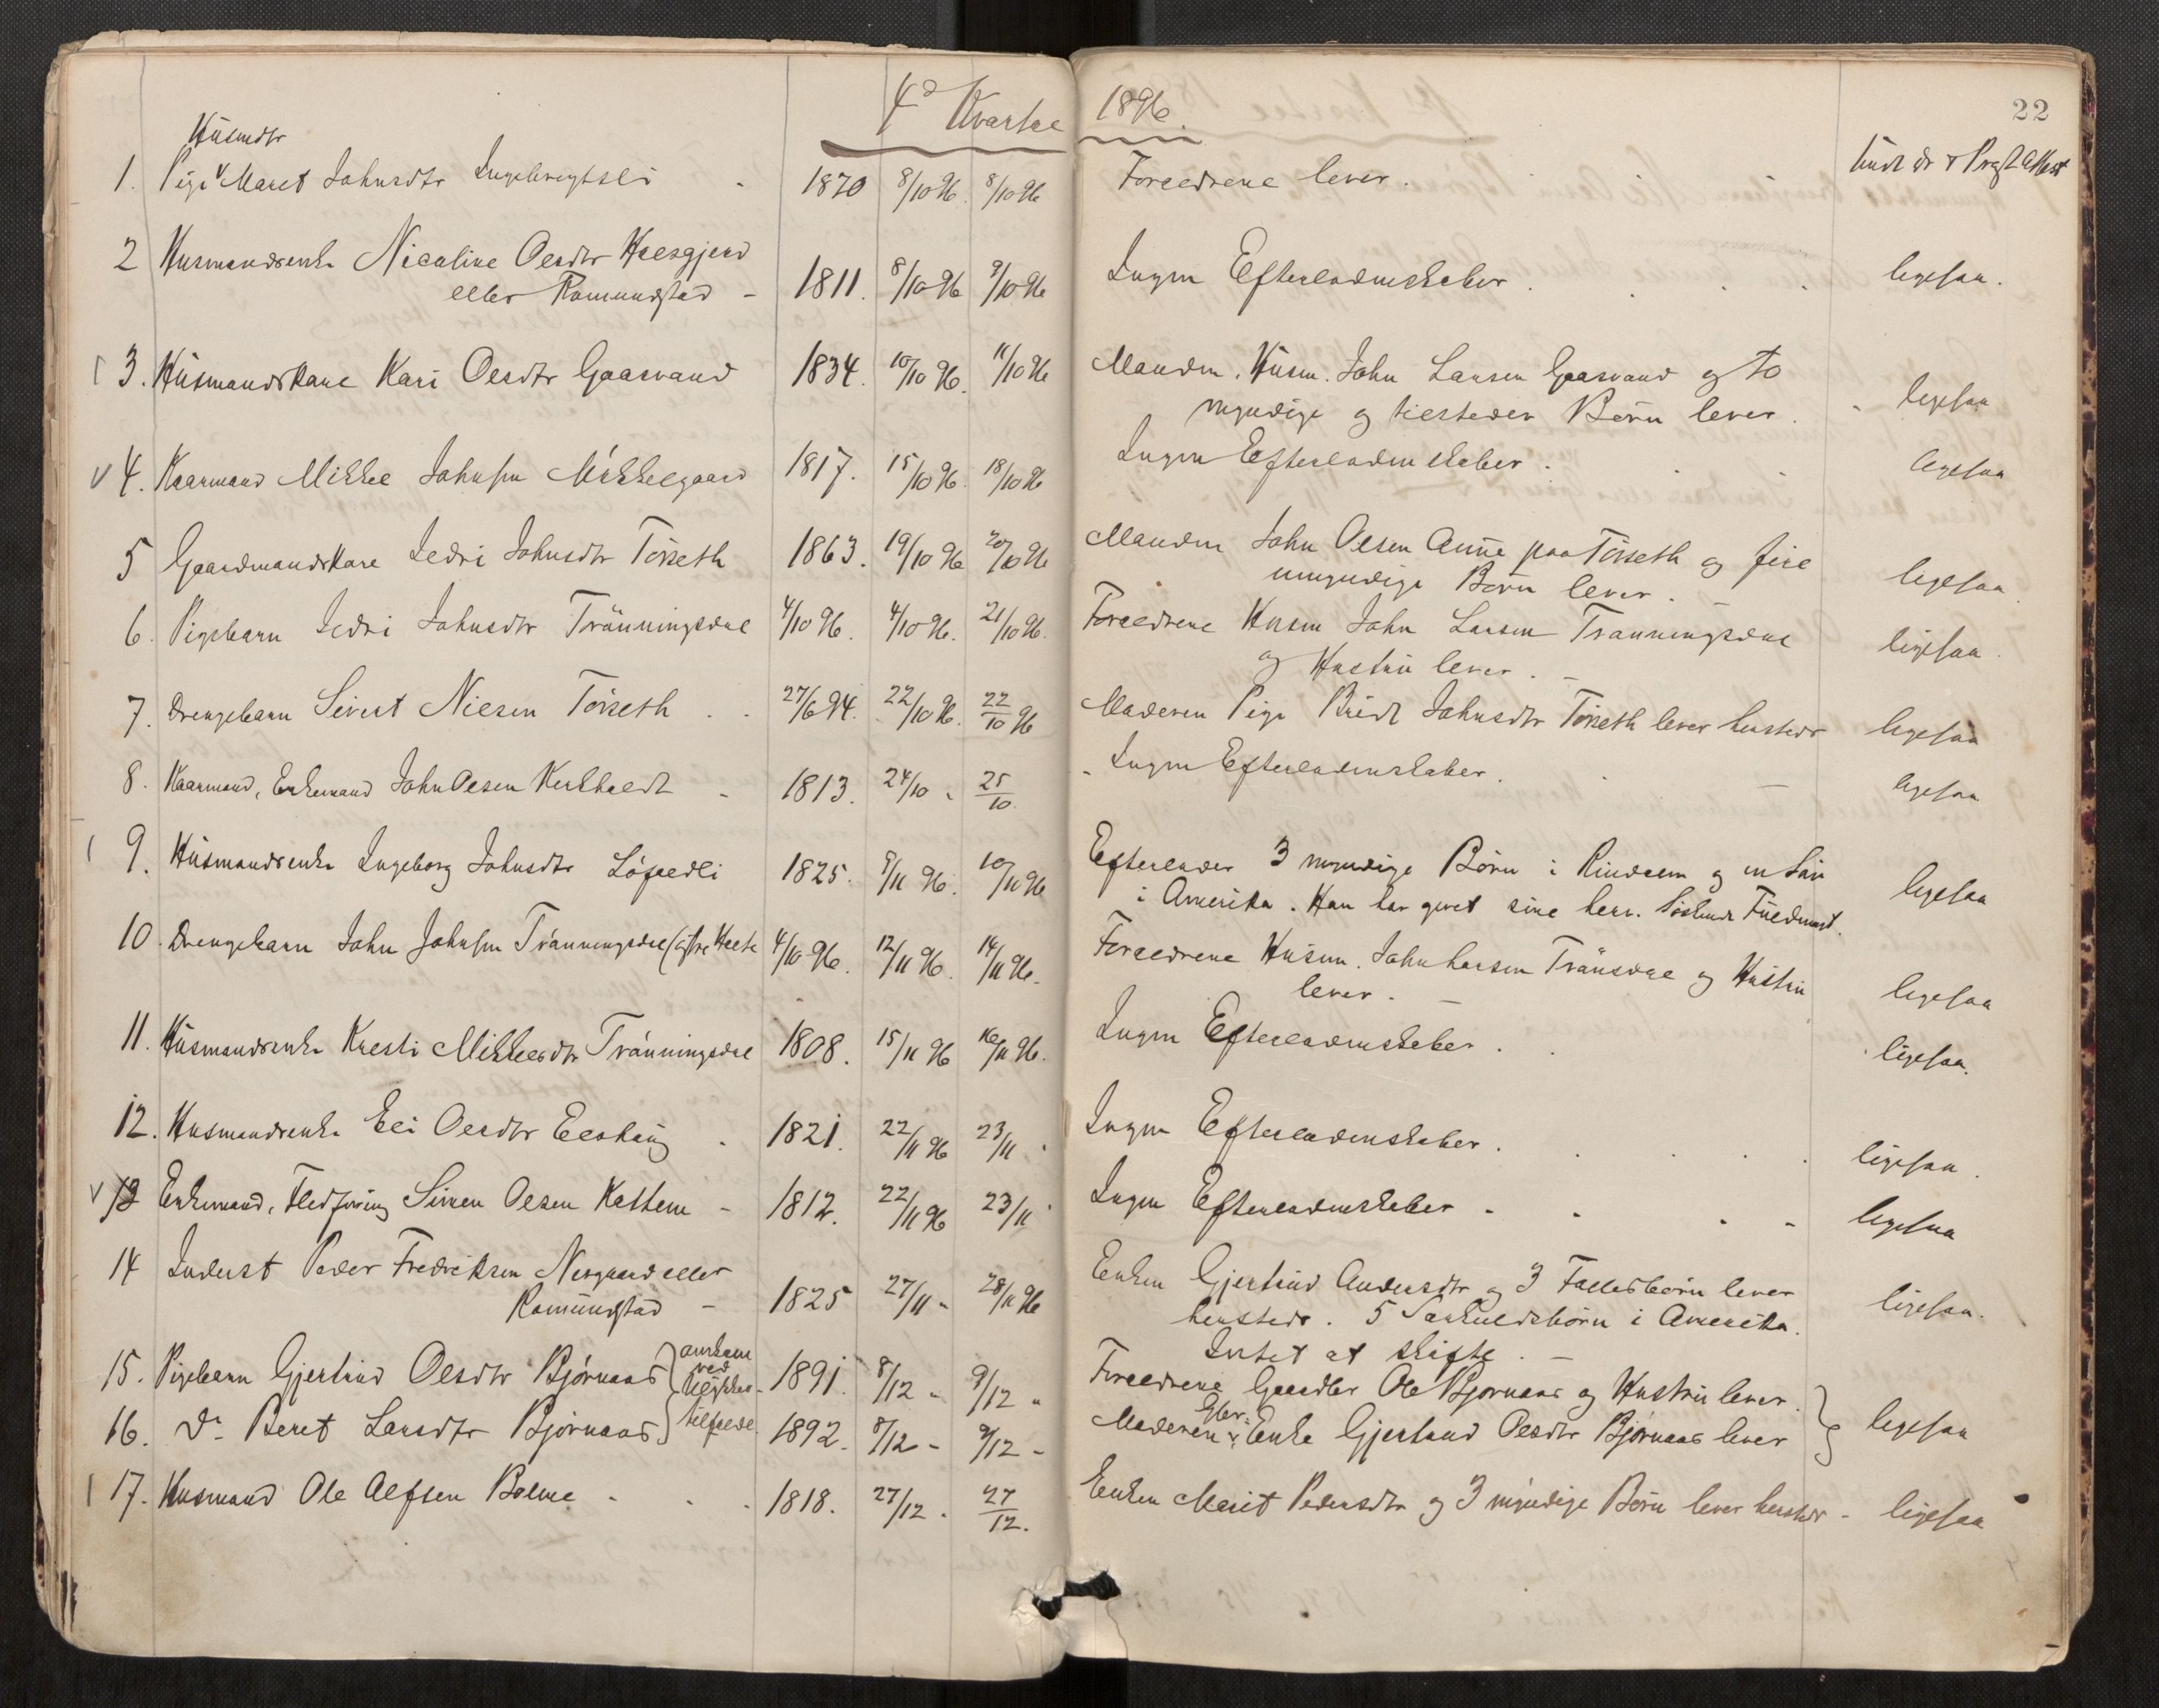 4d Kvartal 1896.
22
Husmdtr
1. Pige Maret Johnsdtr Ingebrigtsli - 1870 8/10 96. 8/10 96 Forældrene lever.
2 Husmandsenke Nicoline Olsdtr Halsgjerd
eller Romundstad - 1811. 8/10 96 9/10 96 Ingen Efterladenskaber. ligesaa.
3. Husmandskane Kari Olsdtr Gaasvand 1834. 10/10 96. 11/10 96 Manden, Husm. John Larsen Gaasvand og to
myndige og tilsteder Børn lever. ligesaa
4. Kaarmand Mikkel Johnsen Mikkelgaard 1817. 15/10 96. 18/10 96 Ingen Efterladenskaber. ligesaa
5 Gaardmandskone Sedri Johnsdtr Tørseth 1863. 19/10 96 20/10 96 Manden John Olsen Aune paa Tørseth og fire
umyndige Børn lever. - ligesaa.
6. Pigebarn Sedri Johnsdtr Trønningsdal 4/10 96. 4/10 96. 21/10 96. Forældrene Husm John Larsen Trønningsdal
og Hustru lever. - ligesaa.
7. Drengebarn Sivert Nilsen Tørseth . . 27/6 94. 22/10 96. 22/10 96 Moderen Pige Brit Johnsdtr Tørseth lever hersteds ligesaa
8. Kaarmand, Enkemand John Olsen Kirkholt - 1813. 24/10 " 25/10. Ingen Efterladenskaber. ligesaa
9. Husmandsenke Ingeborg Johnsdtr Løfaldli 1825. 9/11 96. 10/11 96 Efterlader 3 myndige Børn i Rindalen og en Søn
i Amerika. Han har givet sine herv. Søskende Fuldmagt. ligesaa
10. Drengebarn John Johnsen Trønningsdal 4/10 96. 12/11 96. 14/11 96. Forældrene Husm. John Larsen Trønsdal og Hustru
lever. - ligesaa
11. Husmandsenke Kresti Mikkelsdtr Trønningsdal 1808. 15/11 96 16/11 96. Ingen Efterladenskaber. ligesaa.
12. Husmandsenke Eli Olsdtr Elshaug . 1821. 22/11 96 23/11 " Ingen Efterladenskaber. ligesaa.
13 Enkemand, Fledføring Simen Olsen Kattem - 1812. 22/11 96 23/11 " Ingen Efterladenskaber - ligesaa
14 Inderst Peder Fredriksen Nergaard eller
Romundstad - 1825 27/11 - 28/11 96 Enken Gjertrud Andersdtr og 3 Fællesbørn lever
hersteds. 5 Særkuldsbørn i Amerika. ligesaa.
Intet at skifte. -
15. Pigebarn Gjertrud Olsdtr Bjørnaas } omkom 1891. 8/12 - 9/12 " Forældrene Gaardbr Ole Bjørnaas og Hustru lever. }
ved Ulykkes-
16. Do Beret Larsdtr Bjørnaas } tilfælde. 1892. 8/12 - 9/12 - Moderen Enke Gjertrud Olsdtr Bjørnaas lever ligesaa
17. Husmand Ole Alfsen Bolme - . . 1818. 27/12. 27/12. Enken Marit Pedersdtr og 3 myndige Børn lever hersteds - ligesaa